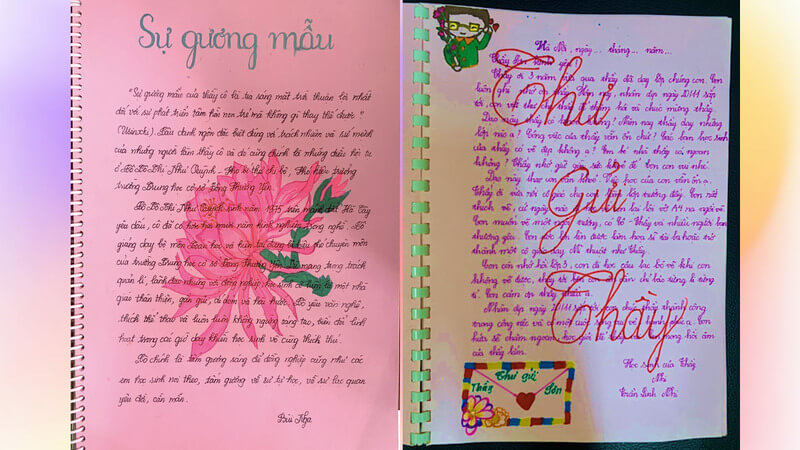 Sự gương mẫu
"Sự gương mẫu của thầy cô là tia sáng mặt trời thuận lợi nhất
đối với sự phát triển tâm hồn non trẻ mà không gì thay thế được."
(Usinxki). Câu danh ngôn đã biết đúng về trách nhiệm và sứ mệnh
của những người làm thầy cô và đó cũng chính là những điều hội tụ
ở Cô Tô Thị Như Quỳnh - Phó bí thư chi bộ, Phó hiệu trưởng
trường Trung học cơ sở Đặng Thượng Yên.
Cô Tô Thị Như Quỳnh sinh năm 1975 trên mảnh đất Hà Tây
yêu dấu, cô đã có hơn hai mươi năm kinh nghiệm trong nghề. Cô
giảng dạy bộ môn Toán học và hiện tại đang là chuyên môn
của trường Trung học cơ sở Đặng Thượng Yên. mang trọng trách
quản lí, lãnh đạo nhưng với đồng nghiệp, học sinh cô luôn là một nhà
giáo thân thiện, gần gũi, dí dỏm và hài hước. Cô yêu văn nghệ,
thích thể thao và luôn luôn không ngừng sáng tạo, biến đổi linh
hoạt trong các giờ dạy khiến học sinh vô cùng thích thú.
Cô chính là tấm gương sáng để đồng nghiệp cũng như các
em học sinh noi theo, tấm gương về sự tự học, về sự lạc quan
yêu đời, cần mẫn.
Bùi Nga
Hà Nội, ngày... tháng... năm...
Thầy kính yêu
Thầy ơi 3 năm vừa qua thầy đã dạy lớp chúng con. Con
luôn ghi nhớ ơn thầy. Hôm nay, nhân dịp ngày 20/11 sắp
tới, con viết thư cho thầy để thăm hỏi và chúc mừng thầy.
Dạo này thầy có khỏe không? Năm nay thầy dạy những
lớp nào ạ? Công việc của thầy vẫn ổn chứ? Các bạn học sinh
của thầy có vẽ đẹp không ạ? Em bé nhà thầy có ngoan
không? Thầy nhớ giữ gìn sức khỏe để con vui nhé.
Dạo này thì con vẫn khỏe. học của con vẫn ổn ạ.
Thầy ơi vừa rồi cô giáo cho con lớn trưởng đấy. Con rất
thích vẽ, cứ ngày nào con lại lôi vở A4 ra ngồi vẽ.
Con muốn vẽ một ngôi trường, có Cô - Thầy và nhiều người bạn
thương yêu. Con ước lớn lên được làm họa sĩ tài ba hoặc trở
thành một cô giáo dạy Mĩ thuật như thầy.
Con còn nhớ hồi lớp 3, con đi học câu lạc bộ vẽ khi con
không vẽ được, thầy đã tới bên con chỉ bảo từng li từng
tí. Con cảm ơn thầy nhiều ạ.
Nhân dịp 20/11 con chúc thầy thành công
trong công việc và có một cuộc sống vui vẻ hạnh phúc ạ. Con
hứa sẽ chăm ngoan học giỏi để không phụ lòng mong mỏi ấm
của thầy lắm.
Học sinh của thầy
Nhi
Trần Linh Nhi
Thư
Gửi
Thầy
Thư gửi
Thầy Sơn